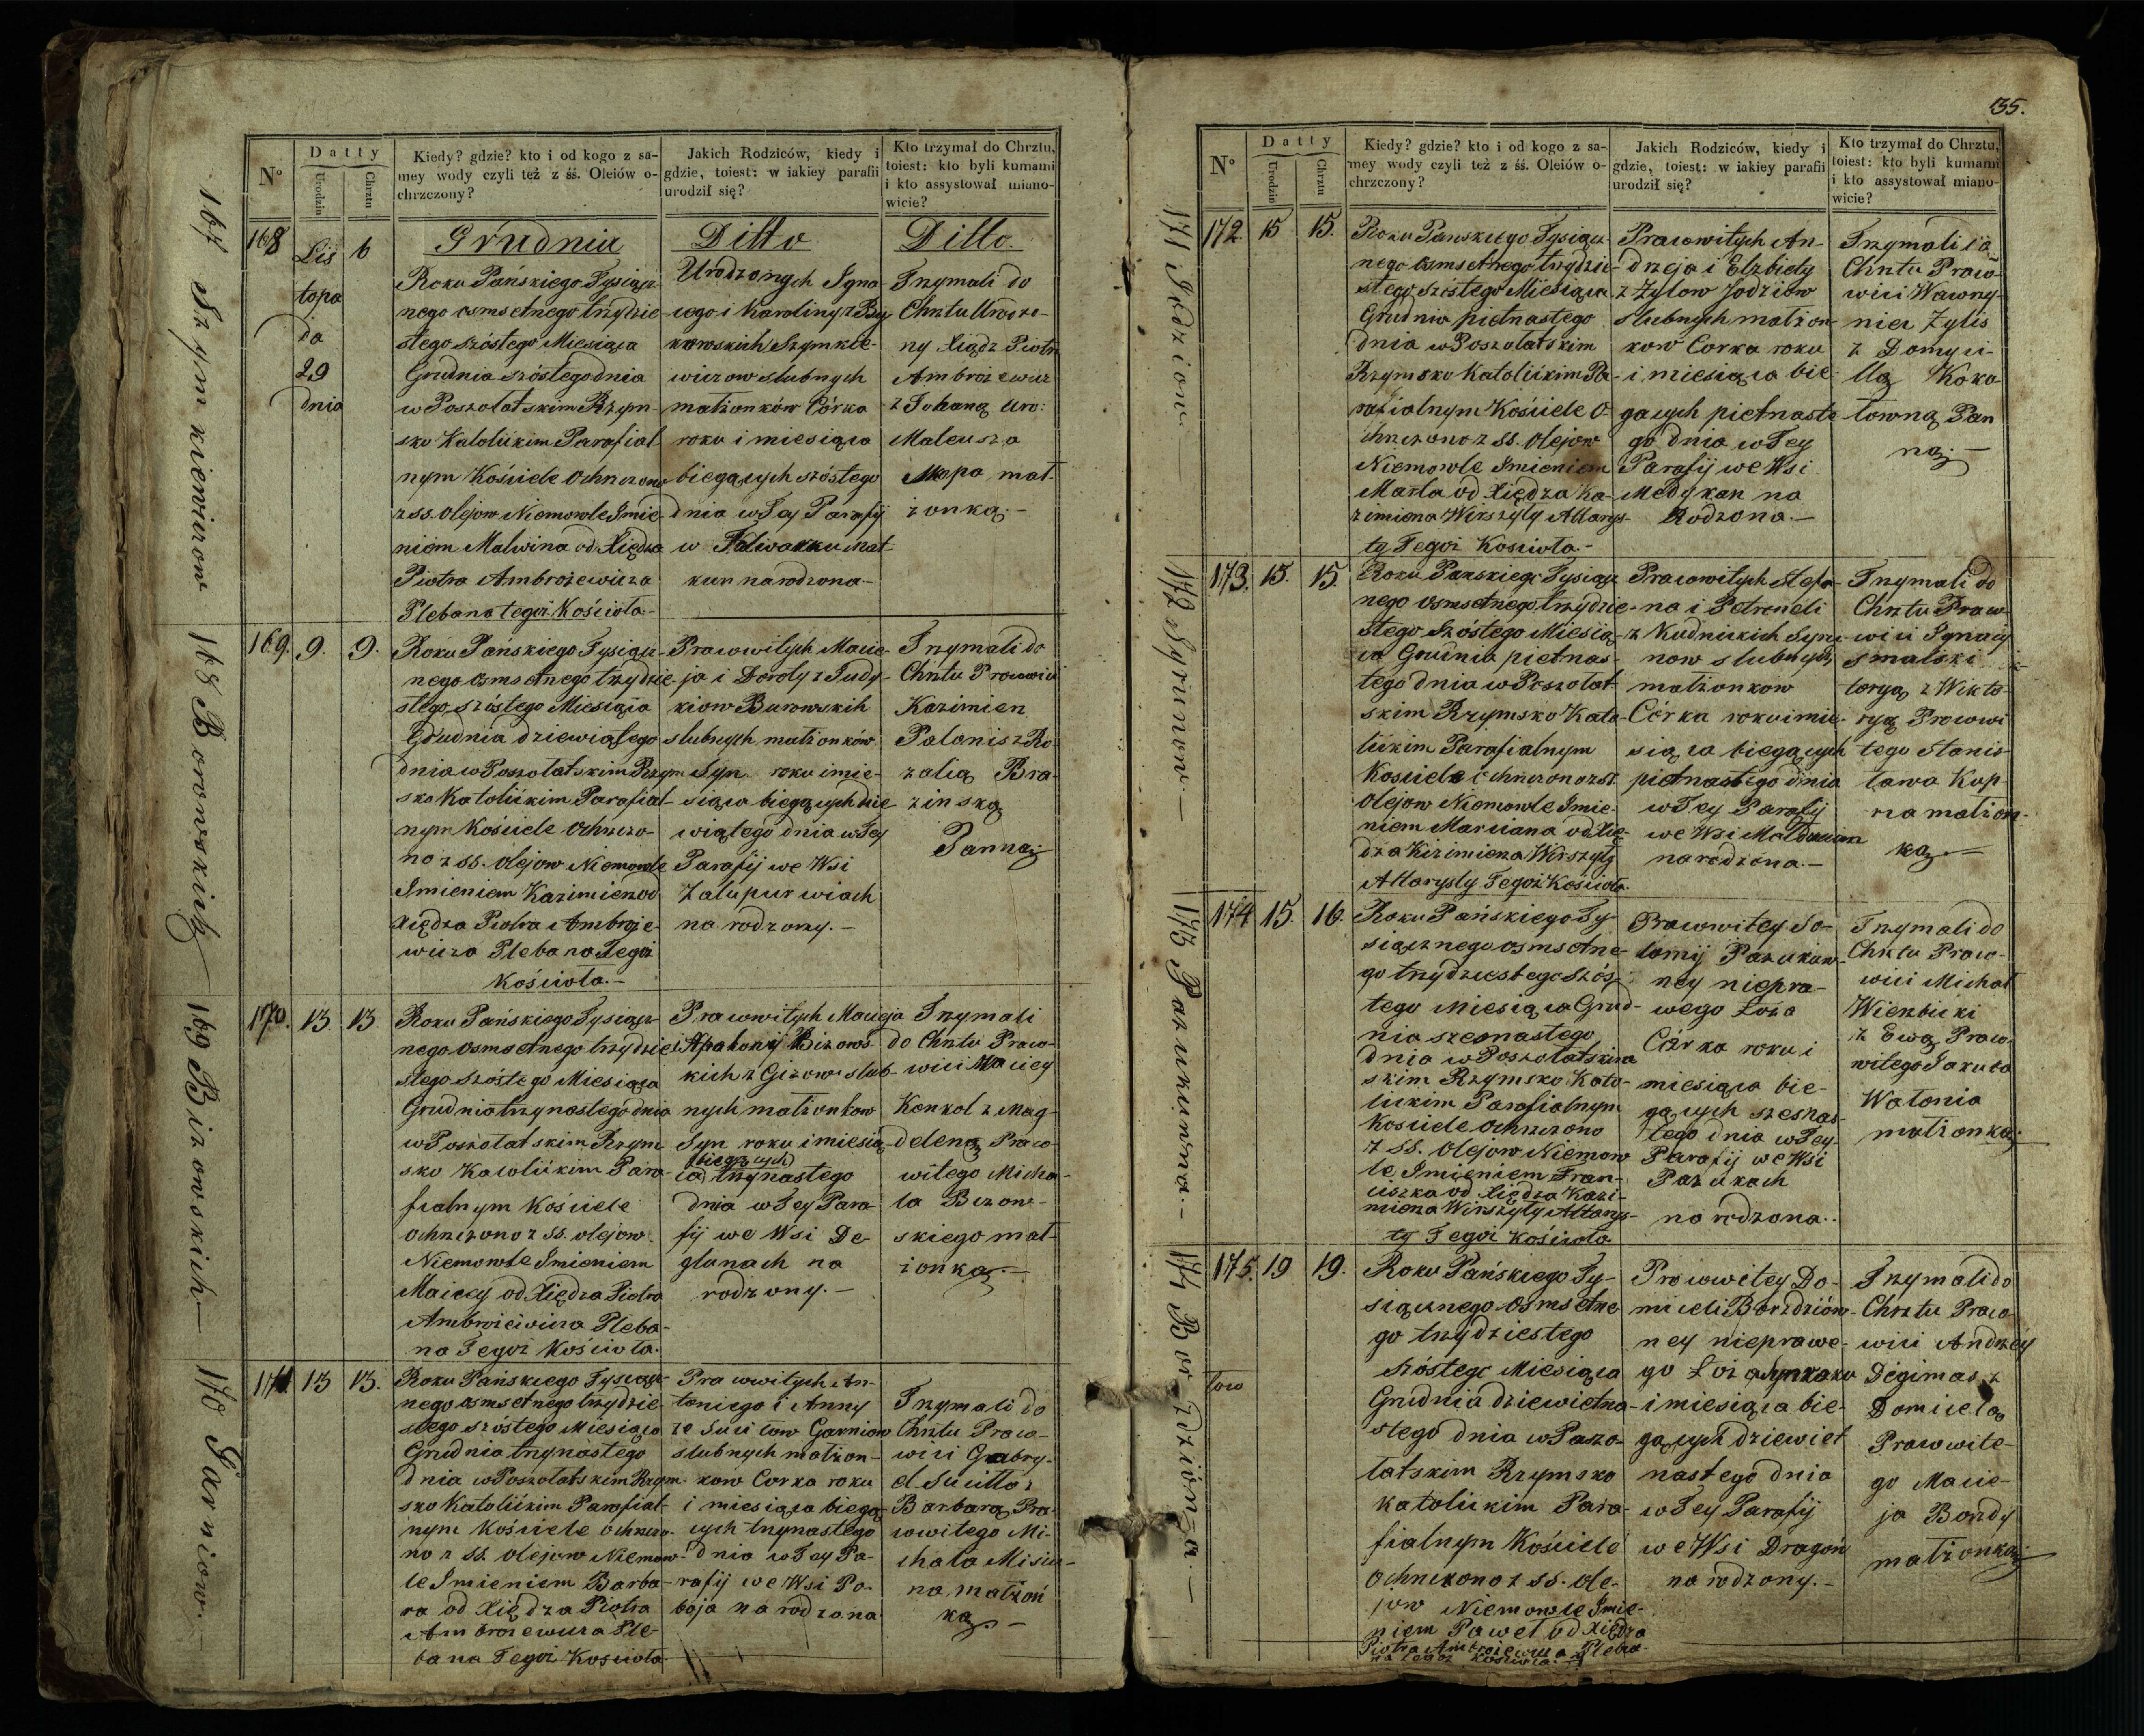 135.
N°
Datty
Urodzin
Chrztu
Kiedy? gdzie? kto i od kogo z sa-
mey wody czyli też z śś. Oleiów o-
chrzczony?
Jakich Rodziców, kiedy i
gdzie, toiest: w iakiey parafii
urodził się?
Kto trzymał do Chrztu,
toiest: kto byli kumami
i kto assystował miano-
wicie?
167 Szymkiewiczow
168 Borowskich
169 Bizowskich
170 Garniow.
168
Lis
topa
da
29
dnia
6
Grudnia
Roku Pańskiego Tysiącz
nego osmsetnego trzydzie-
stego szóstego Miesiąca
Grudnia szóstego dnia
w Poszołatskim Rzym-
sko Katolickim Parafial
nym Kościele Ochrzczono
z ss. olejow Niemowle Imie-
niem Malwina od Xiędza
Piotra Ambrożewicza
Plebana tegoż Kościoła.-
Ditto
Urodzonych Igna
cego i Karoliny z By
kowskich Szymkie-
wiczow slubnych
małżonków Córka
roku i miesiąca
biegących szóstego
dnia w Tey Parafij
w Folwarku Mat
kun narodzona-
Ditto.
Trzymali do
Chrztu Urodzo-
ny Xiądz Piotr
Ambrożewicz
z Johaną Uro:
Mateusza
małżonką.-
169.
9.
9.
Roku Pańskiego Tysiącz-
nego osmsetnego trzydzie-
stego szóstego Miesiąca
Grudnia dziewiątego
dnia w Poszołatskim Rzym
sko Katolickim Parafial-
nym Kościele Ochrzczo-
no z ss. olejow Niemowle
Imieniem Kazimierz od
Xiędza Piotra Ambroże-
wicza Plebana Tegoż
Kościoła.-
Pracowitych Macie-
ja i Doroty z Judy-
kiow Borowskich
slubnych małżonków
Syn roku i mie-
siąca biegących dzie-
wiątego dnia w Tey
Parafij we Wsi
Załupurwiach
narodzony.-
Trzymali do
Chrztu Pracowici
Kazimierz
Polonis z Ro
zalią Bra-
zinską
Panną
170.
13
13
Roku Pańskiego Tysiącz
nego osmsetnego trzydzie
stego szóstego Miesiąca
Grudnia trzynastego dnia
w Poszołatskim Rzym
sko Katolickim Para-
fialnym Kościele
ochrzczono z ss. olejow
Niemowle Imieniem
Maciey od Xiędza Piotra
Ambrożewicza Pleba-
na Tegoż Kościoła.
Pracowitych Macieja
i Apolonij Bizows-
kich z Gizow slub-
nych małżonkow
Syn roku i miesią-
ca biegących trzynastego
dnia w Tey Para-
fij we Wsi De-
glunach na
rodzony.-
Trzymali
do Chrztu Praco-
wici Maciey
Konkol z Mag-
deleną Praco-
witego Micha-
ła Bizow-
skiego mał-
żonką.-
171.
13
13.
Roku Pańskiego Tysiącz-
nego osmsetnego trzydzie-
stego szóstego Miesiąca
Grudnia trzynastego
dnia w Poszołatskim Rzym-
sko Katolickim Parafial-
nym Kościele ochrzczo-
no z ss. olejow Niemow-
le Imieniem Barba-
ra od Xiędza Piotra
Ambrożewicza Ple-
bana Tegoż Kościoła
Pracowitych An-
toniego i Anny
ze Suiłłow Garniow
slubnych małżon-
kow Corka roku
i miesiąca biegą
cych trzynastego
dnia w Tey Pa-
rafij we Wsi Po-
boja narodzona
Trzymali do
Chrztu Praco-
wici Gabry-
el Suiłło z
Barbarą Pra-
cowitego Mi-
chała Misiu-
na małżon
ką.-
171 Jodziow
172 Syrunow-
173 Pazukunna-
174 Bordzionna-
172.
15
15.
Roku Panskiego Tysiącz
nego osmsetnego trzydzie-
stego szóstego Miesiąca
Grudnia piętnastego
dnia w Poszołatskim
Rzymsko Katolickim Pa-
rafialnym Kościele O-
chrzczono z ss. olejow
Niemowle Imieniem
Marta od Xiędza Ka-
zimierza Wirszyły Altarys-
ty Tegoż Kościoła.-
Pracowitych An-
drzeja i Elżbiety
z Żyłow Jodziow
slubnych małżon-
kow Corka roku
i miesiąca bie-
gących piętnaste
go dnia w Tey
Parafij we Wsi
Medykan na
Rodzona.-
Trzymali do
Chrztu Praco-
wici Wawrzy-
niec Żylis
z Domici-
llą Koko-
łowną Pan
ną.-
173.
15.
15.
Roku Panskiego Tysiącz
nego osmsetnego trzydzie-
stego Szóstego Miesią-
ca Grudnia piętnas-
tego dnia w Poszołat-
skim Rzymsko Kato-
lickim Parafialnym
Kościele ochrzczono z ss.
olejow Niemowle Imie-
niem Marciana od Xię-
dza Kazimierza Wirszyły
Altarysty Tegoż Kościoła.
Pracowitych Stefa-
na i Petroneli
z Kudnickich Syru-
now slubnych
małżonkow
Córka roku i mie-
siąca biegących
piętnastego dnia
w Tey Parafij
we Wsi
narodzona.-
Trzymali do
Chrztu Praco-
wici Ignacy
Smalski
z Wikto-
ryą Pracowi
tego Stanis-
ława
małżon-
ką.-
174
15.
16.
Roku Pańskiego Ty-
siącznego osmsetne-
go trzydziestego szós-
tego Miesiąca Grud-
nia szesnastego
dnia w Poszołatskim
skim Rzymsko Kato-
lickim Parafialnym
Kościele ochrzczono
z ss. olejow Niemow
le Imieniem Fran-
ciszka od Xiędza Kazi-
mierza Wirszyły Altarys-
ty Tegoż Kościoła
Pracowitey So-
lomij Pazukun-
ney niepra-
wego Łoża
Córka roku i
miesiąca bie-
gących szesnas-
tego dnia w Tey-
Parafij we Wsi
Pazukach
narodzona..
Trzymali do
Chrztu Praco-
wici Michał
Wierzbicki
z Ewą Praco-
witego Jakuba
Watonia
małżonką.
175.
19
19.
Roku Pańskiego Ty-
siącznego osmsetne
go trzydziestego
szóstego Miesiąca
Grudnia dziewiętna-
stego dnia w Poszo-
łatskim Rzymsko
katolickim Para-
fialnym Kościele
Ochrzczono z ss. ole-
jow Niemowle Imie-
niem Paweł od Xiędza
Piotra Ambrożewicza Pleba-
na tegoż Kościoła.
Pracowitey Do-
miceli Bordzión-
ney niepra­we-
go Łoża Syn roku
i miesiąca bie-
gących dziewięt
nastego dnia
w Tey Parafij
we Wsi Dragoń
narodzony.-
Trzymali do
Chrztu Praco-
wici Andrzey
Degimas z
Domicelą
Pracowite-
go Macie-
ja Bordy
małżonką.